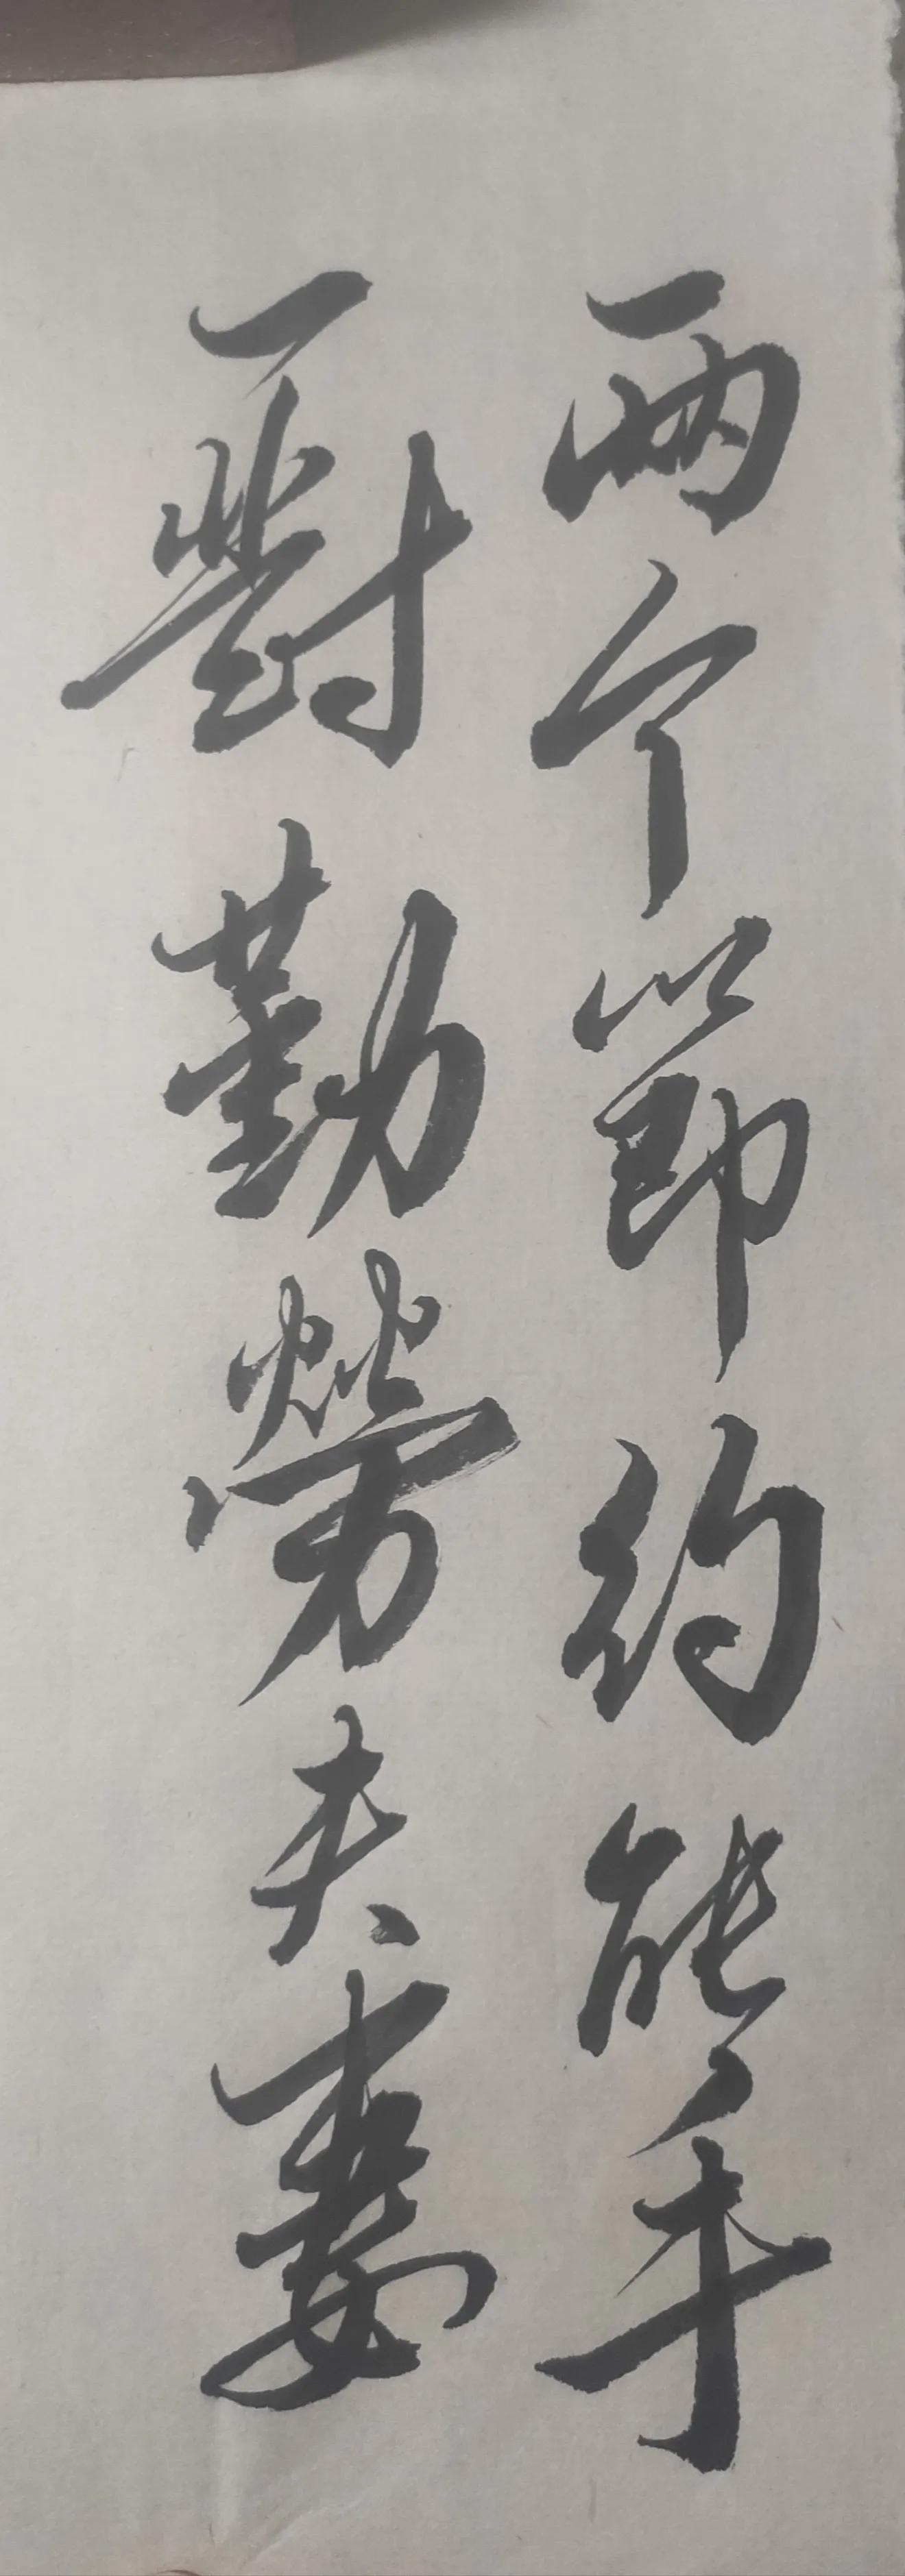 兩个節約能手
一對勤勞夫妻